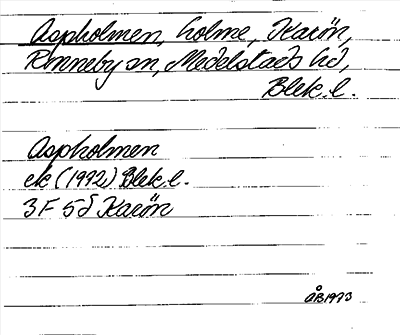 Aspholmen, holme, Karön,
Ronneby sn, Medelstads hd,
Blek.l.
Aspholmen
ek (1972) Blek.l.
3F 5d Karön
ÅB1973